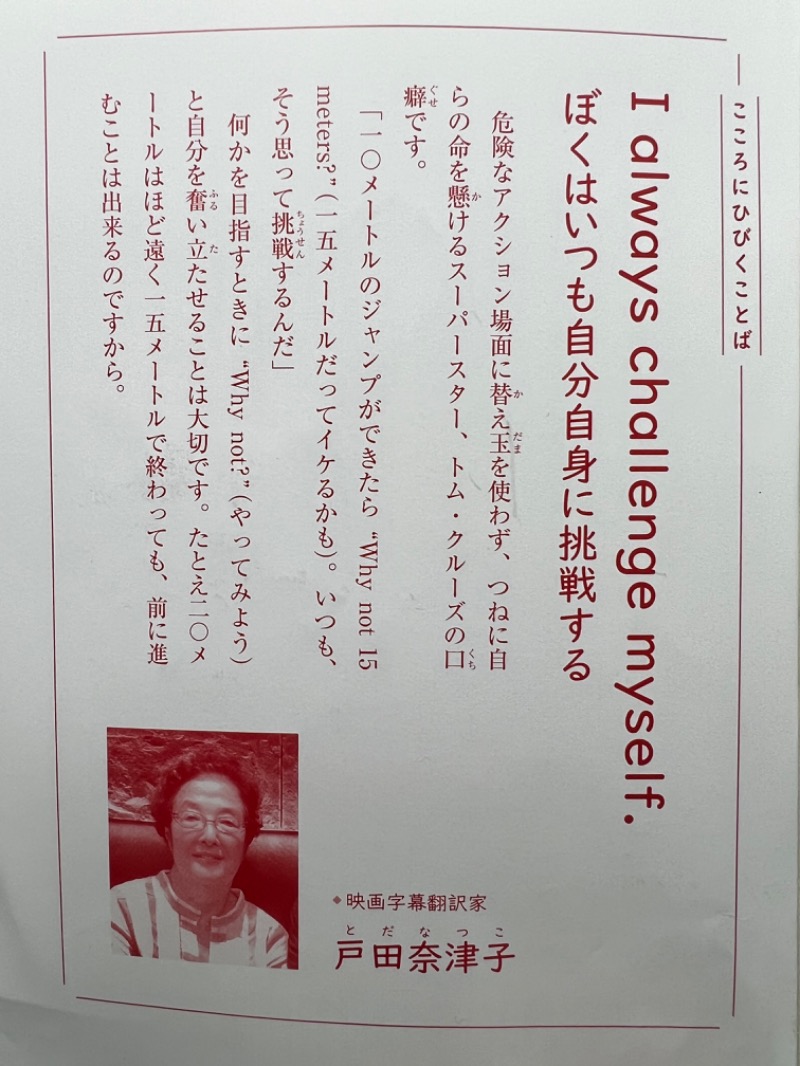 こころにひびくことば
I always challenge myself.
ぼくはいつも自分自身に挑戦する
危険なアクション場面に替え玉を使わず、つねに自
らの命を懸けるスーパースター、トム・クルーズの口
癖です。
「一〇メートルのジャンプができたら “Why not 15
meters?”（一五メートルだってイケるかも）。いつも、
そう思って挑戦するんだ」
何かを目指すときに “Why not?”（やってみよう）
と自分を奮い立たせることは大切です。たとえ二〇メ
ートルはほど遠く一五メートルで終わっても、前に進
むことは出来るのですから。
◆映画字幕翻訳家
とだなつこ
戸田奈津子